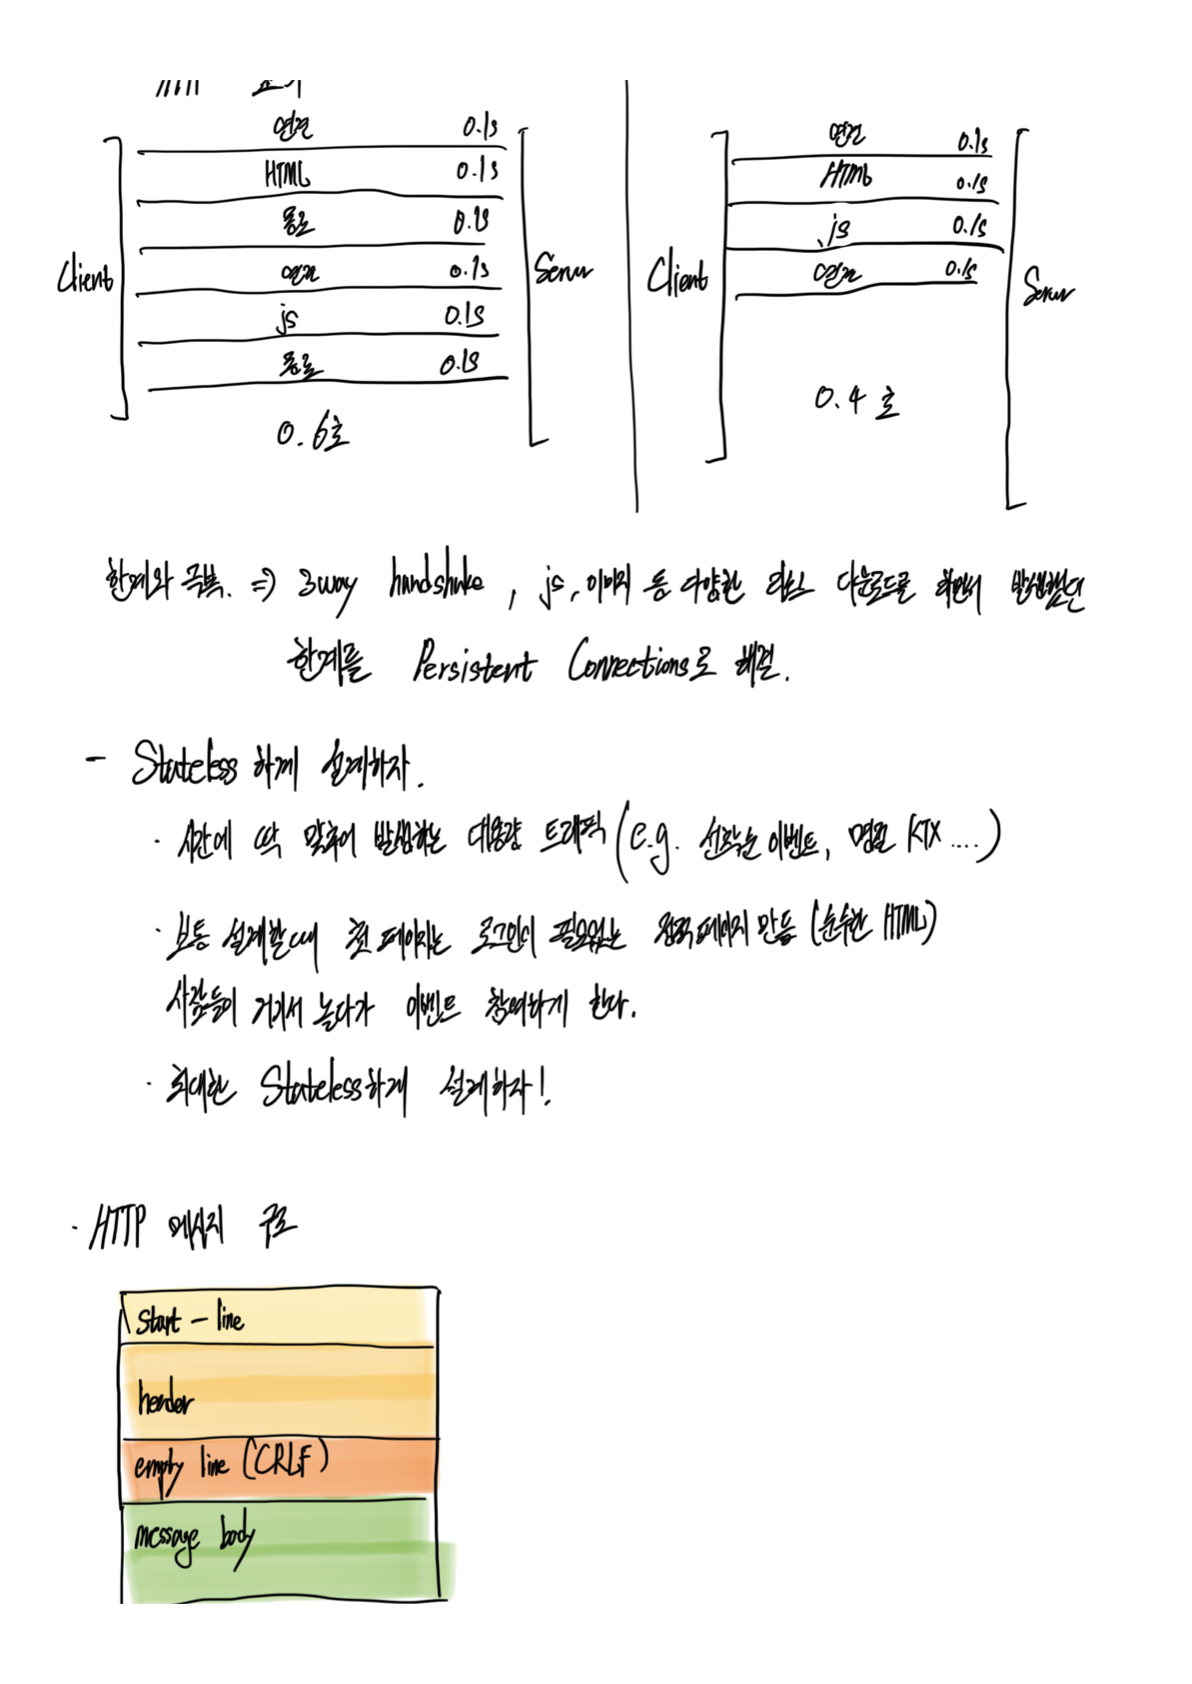 연결 0.1s
HTML 0.1s
종료 0.1s
연결 0.1s
js 0.1s
종료 0.1s
Client
Server
0.6초
연결 0.1s
HTML 0.1s
js 0.1s
연결 0.1s
Client
Server
0.4초
한계와 극복. => 3way handshake, js, 이미지 등 다양한 리소스 다운로드를 하면서 발생했던
한계를 Persistent Connections로 해결.
- Stateless 하게 설계하자.
· 시간에 딱 맞추어 발생하는 대용량 트래픽 (e.g. 선착순 이벤트, 명절 KTX ....)
· 보통 설계할때 첫 페이지는 로그인이 필요없는 정적페이지 만듬 (순수한 HTML)
사람들이 거기서 놀다가 이벤트 참여하게 한다.
· 최대한 Stateless하게 설계하자!
· HTTP 메시지 구조
start - line
header
empty line (CRLF)
message body